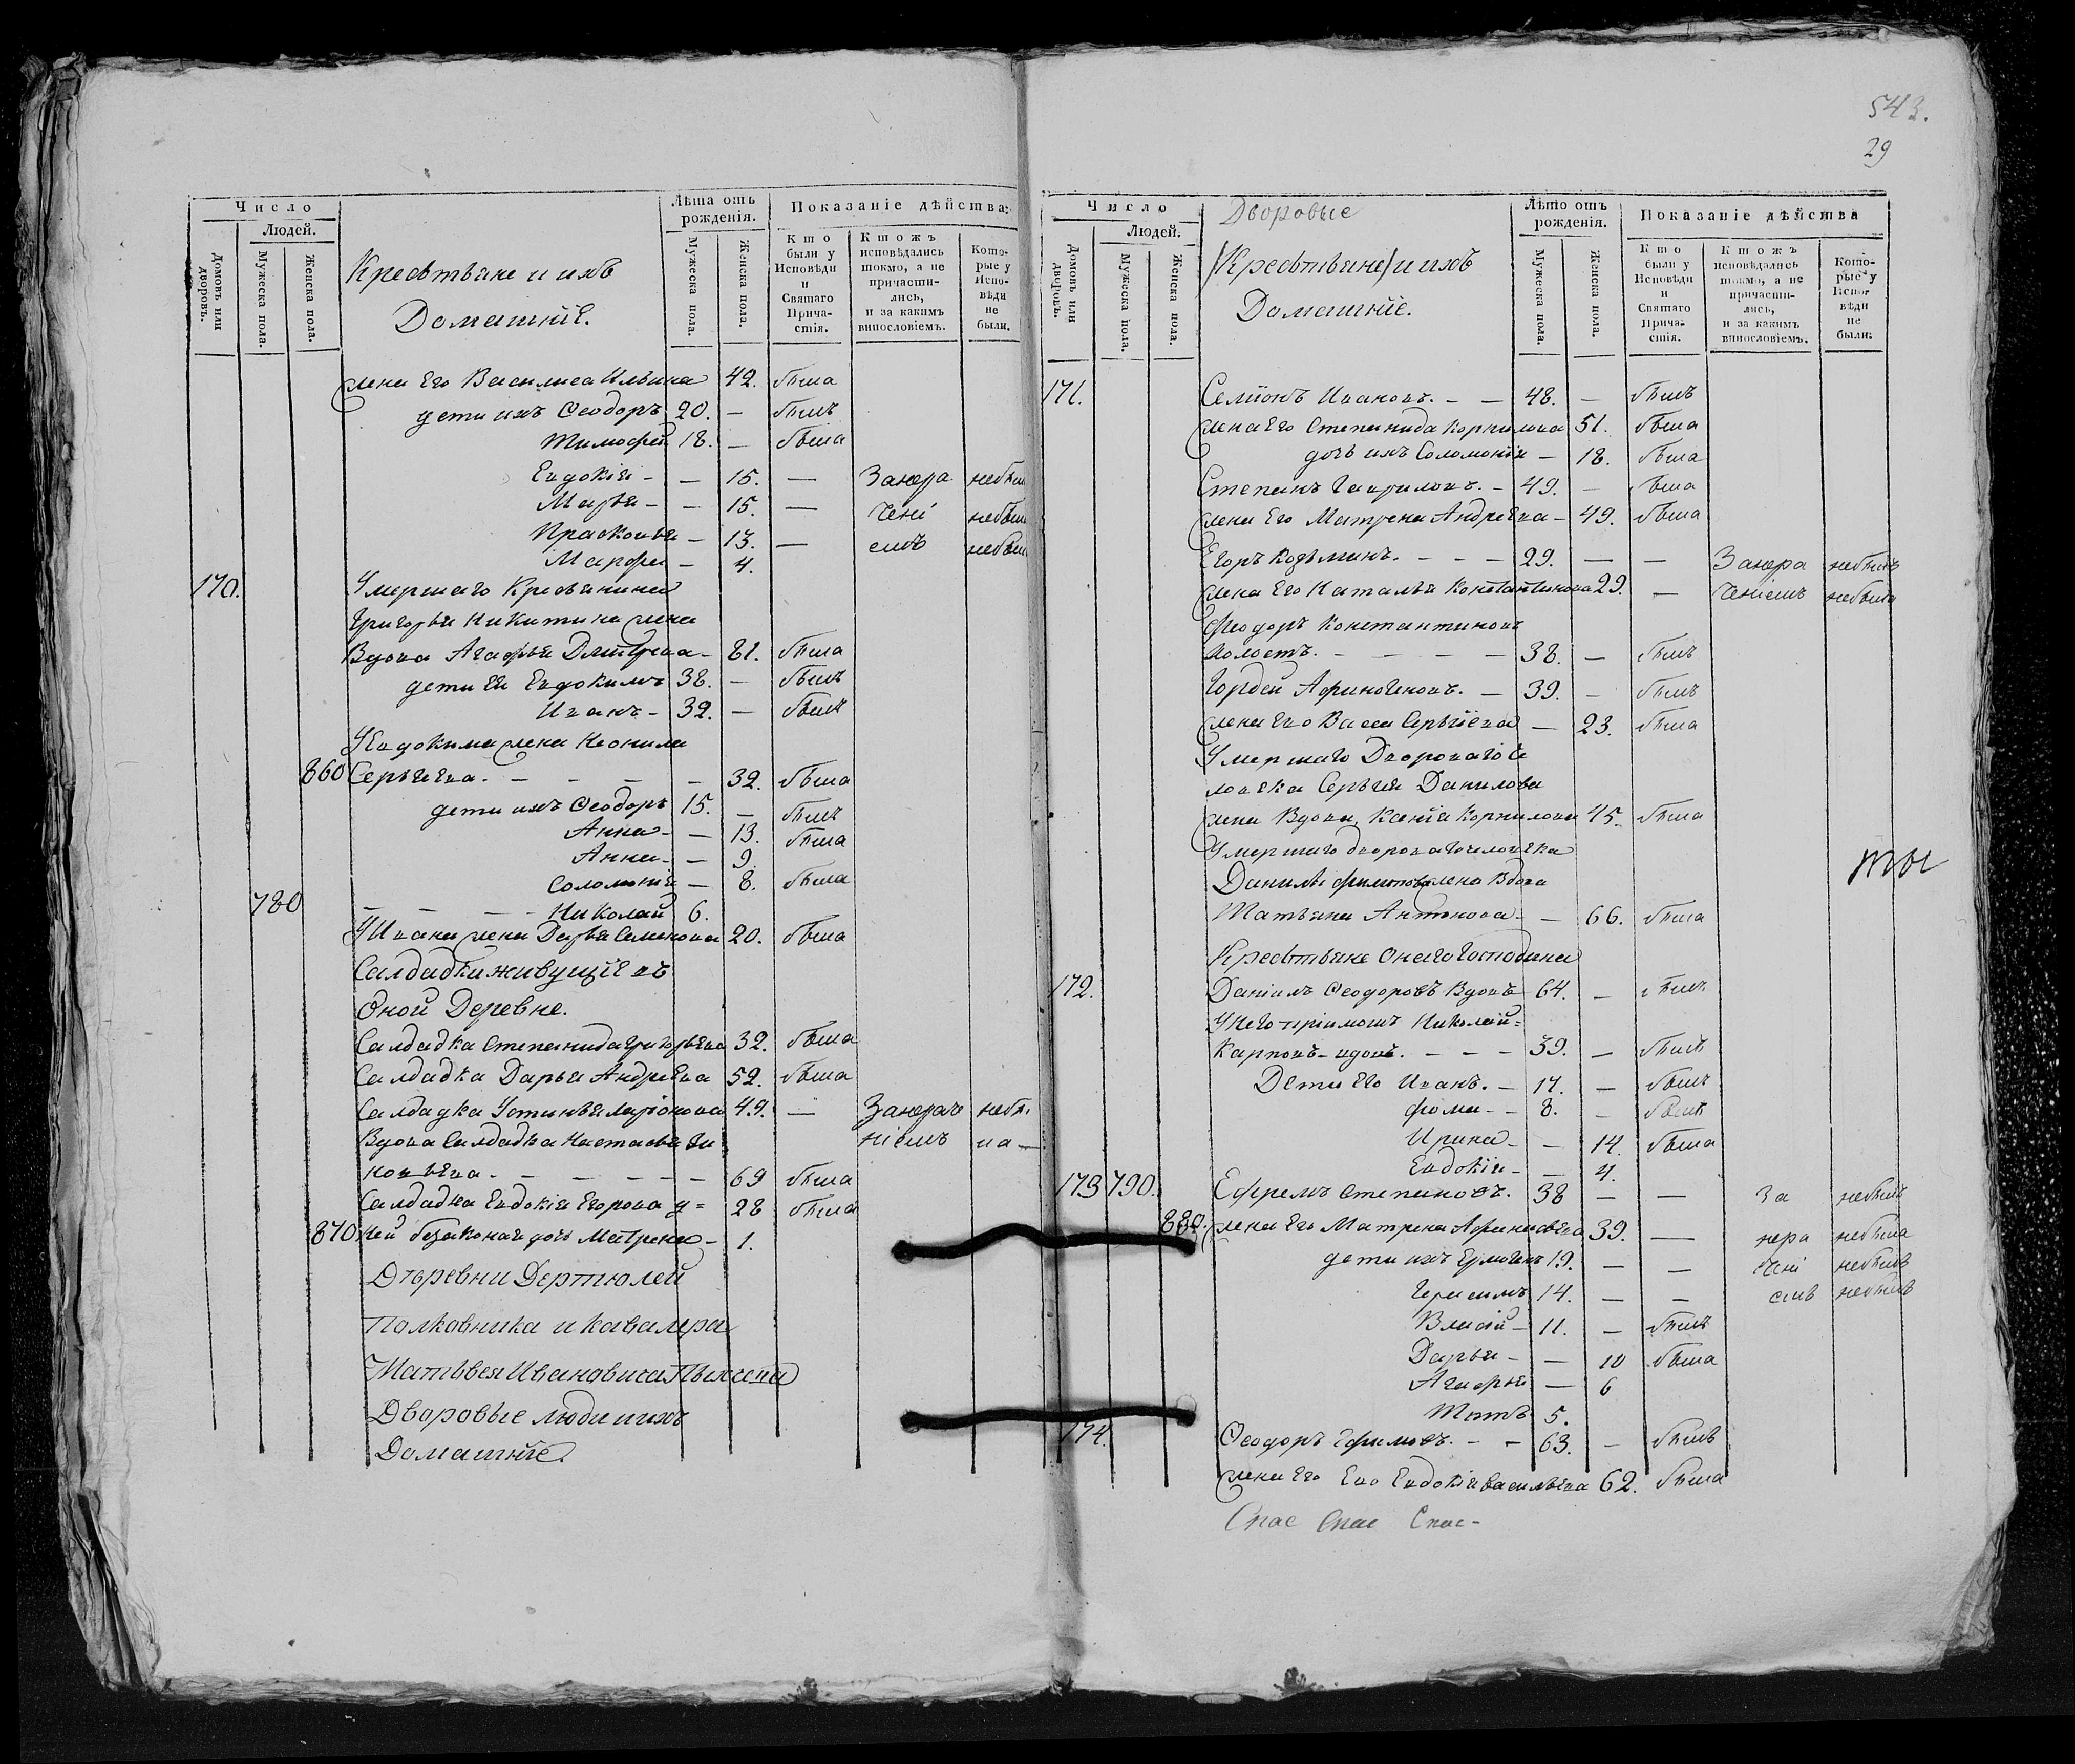 543.
29
Число
Людей.
Домовъ или дворовъ.
Мужеска пола.
Женска пола.
Крестьяне и ихъ
Домашніе.
Лѣта отъ рожденія.
Мужеска пола.
Женска пола.
Показаніе дѣйства:
Кто были у Исповѣди и Святаго Причастія.
Ктожъ исповѣдались токмо, а не причастились, и за какимъ винословіемъ.
Которые у Исповѣди не были.
жена Его Василиса Ильина 42. была
дети ихъ Ѳеодоръ 20. — былъ
Тимофей 18. — была
Евдокія — — 15. — Занера небыла
Марья — — 15. — чені небыла
Прасковья — 13. — емъ небыла
Марфа — 4.
170. Умершаго Крестьянина
Григорья Никитина жена
Вдова Агафья Дмитрева — 81. была
дети Ея Евдокимъ 38. — былъ
Иванъ — 32. — былъ
У Евдокима жена Неонила
860 Сергѣева. — — — — 32. была
дети ихъ Ѳеодоръ 15. — былъ
Анна — — 13. была
Анна — — 9.
Соломонія — 8. была
780 — — — Николай 6.
У Ивана жена Дарья Семенова 20. была
Салдадки живущіе въ
Оной Деревне.
Салдадка Степанида Григорьева 32. была
Салдадка Дарья Андрѣева 52. была
Салдадка Устинья Ларіонова 49. — Занераче небы
Вдова Салдадка Настасья Ти ніемъ ла —
— — — — — 69 была
Салдадка Евдокія Егорова у = 28 была
870 ней безаконая дочь Матрена — 1.
Дъревни Дертюлей
Полковника и кавалера
Матьвея Ивановича
Дворовые люди и ихъ
Домашніе.
Число
Людей.
Домовъ или дворовъ.
Мужеска пола.
Женска пола.
Дворовые
/Крестьяне/ и ихъ
Домашніе.
Лѣто отъ рожденія.
Мужеска пола.
Женска пола.
Показаніе дѣйства
Кто были у Исповѣди и Святаго Причастія.
Ктожъ исповѣдались токмо, а не причастились, и за какимъ винословіемъ.
Которые у Исповѣди не были:
171. Семіонъ Ивановъ. — — 48. — былъ
жена Его Степанида Корнилова 51. была
дочь ихъ Соломонія — 18. была
Степанъ Гавриловъ. — 49. — была
жена Его Матрена Андрѣева — 49. была
Егоръ Козьминъ. — — — 29. — — Занера небылъ
жена Его Наталья Константинова 29. — ченіемъ небыла
Феодоръ Константиновъ
Холостъ. — — — — 38. — былъ
Гордей Афиногеновъ. — 39. — былъ
жена Его Васса Сергіева — 23. была
Умершаго Двороваго че
ловека Сергея Данилова
жена Вдова, Ксенія Корнилова 45. была
Умершаго двороваго человека
Данилы Филипова жена Вдова
ты
Татьяна Антонова — — 66. была
Крестьяне Онаго Господина
172. Даніилъ Ѳеодоровъ Вдовъ 64. — былъ
У него пріимошъ Николай =
Карповъ — вдовъ. — — — 39. — былъ
Дети Его Иванъ. — 17. — былъ
Фома — — 8. — былъ
Ирина — — 14. была
Евдокія — — 4.
173 790. Ефремъ Степановъ. 38 — — За небылъ
880. жена Его Матрена Афанасьева 39. — нера небыла
дети ихъ Ермогенъ 19. — — чені небылъ
Герасимъ 14. — — емъ небылъ
Власій — 11. — былъ
Дарья — — 10 была
Агафья — 6
Титъ 5.
174. Ѳеодоръ Ефимовъ. — — 63. — былъ
жена Его Ево Евдокія Васильева 62. была
Спас Спас Спас —